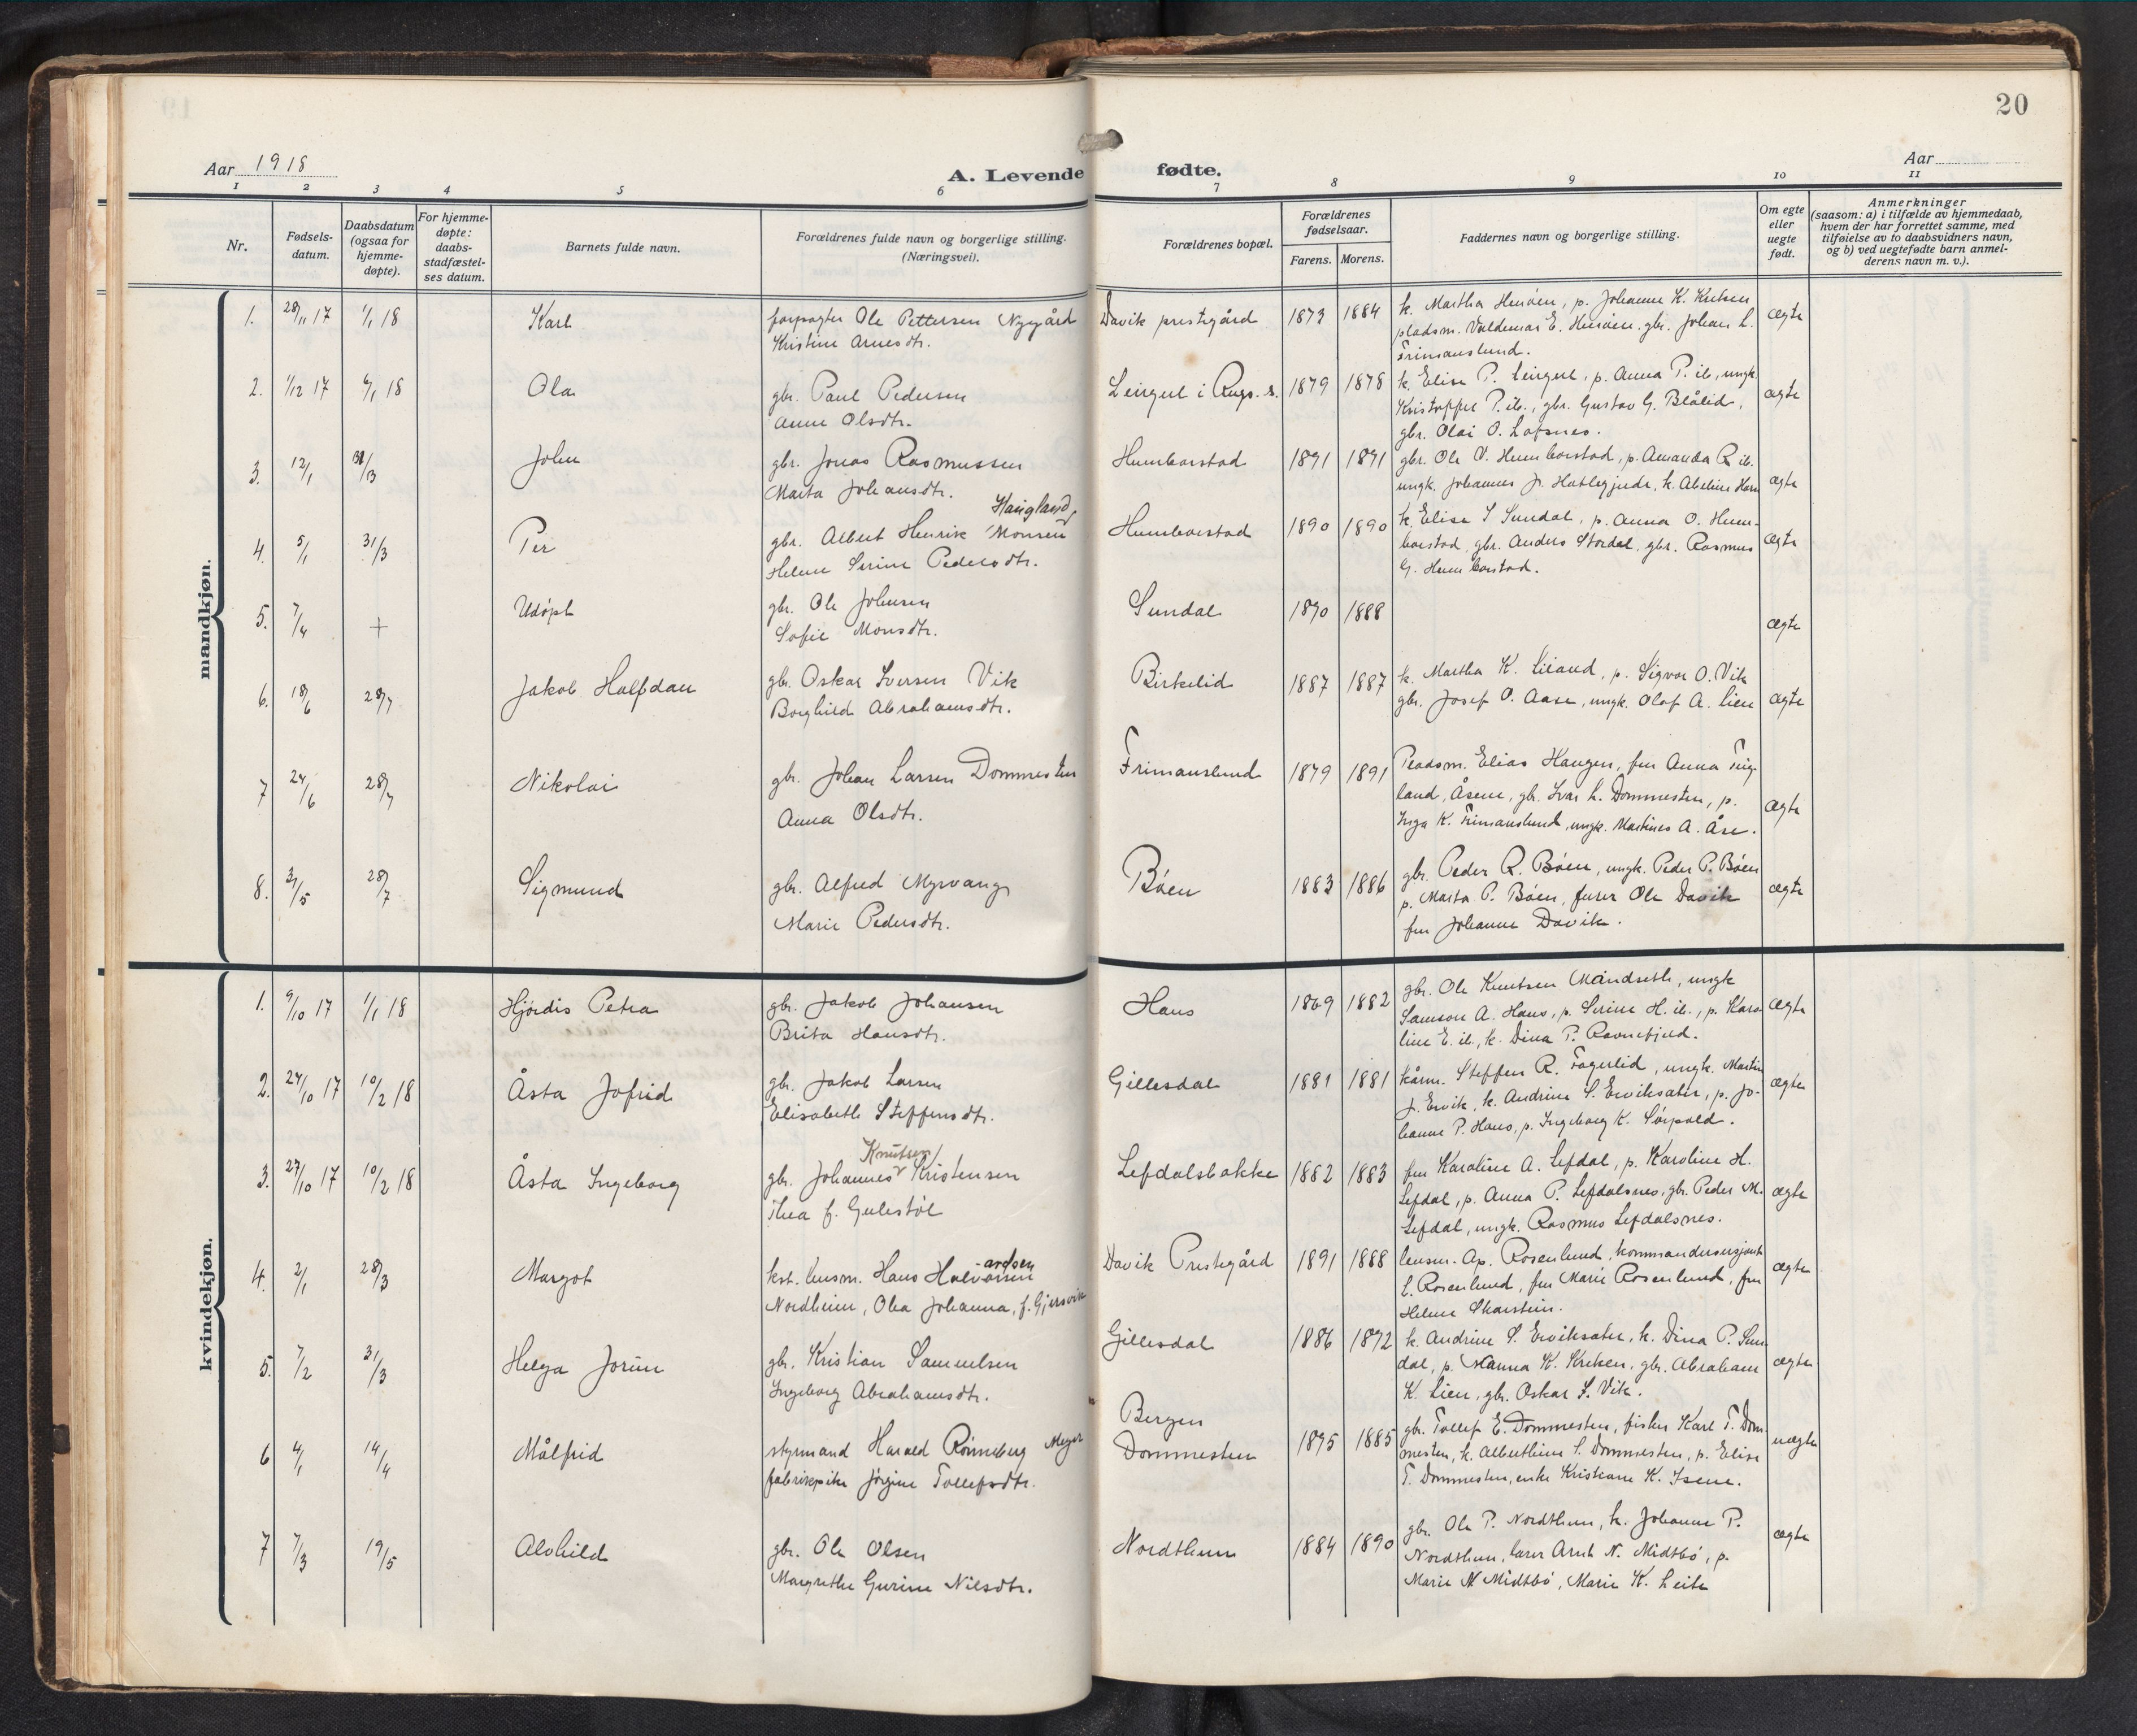 20
Aar 1918
A. Levende fødte.
Aar
1 2 3 4 5 6 7 8 9 10 11
Nr.
Fødsels-
datum.
Daabsdatum
(ogsaa for
hjemme-
døpte).
For hjemme-
døpte:
daabs-
stadfæstel-
ses datum.
Barnets fulde navn.
Forældrenes fulde navn og borgerlige stilling.
(Næringsvei).
Forældrenes bopæl.
Forældrenes
fødselsaar.
Farens. Morens.
Faddernes navn og borgerlige stilling.
Om egte
eller
uegte
født.
Anmerkninger
(saasom: a) i tilfælde av hjemmedaab,
hvem der har forrettet samme, med
tilføielse av to daabsvidners navn,
og b) ved uegtefødte barn anmel-
derens navn m. v.).
mandkjøn.
1. 28/11 17 1/1 18 Karl
forpagter Ole Pettersen Nygård
Kristine Arnesdtr.
Davik prestegård 1873 1884
k. Martha Husøen, p. Johanne K. Knutsen
pladsm. Valdemar E. Husøen, gbr. Johan L.
Frimanslund.
ægte
2. 1/12 17 6/1 18 Ola
gbr. Paul Pedersen
Anne Olsdtr.
Leirgul i Bugs. s. 1879 1878
k. Elise P. Leirgul, p. Anna P. ib., ungk.
Kristoffer P. ib., gbr. Gustav G. Blålid,
gbr. Olai O. Lofsnes.
ægte
3. 12/1 31/3 John
gbr. Jonas Rasmussen
Marta Johansdtr.
Humborstad 1891 1891
gbr. Ole V. Humborstad, p. Amanda R. ib.
ungk. Johannes J. Hatlegjerde, k. Abeline
ægte
4. 5/1 31/3 Per
Haugland
gbr. Albert Henrik Monsen
Helene Serine Pedersdtr.
Humborstad 1890 1890
k. Elise S Sundal, p. Anna O. Hum-
borstad, gbr. Anders Stordal, gbr. Rasmus
G. Humborstad.
ægte
5. 7/4 + Udøpt
gbr. Ole Johnsen
Sofie Monsdtr.
Sundal 1890 1888
ægte
6. 18/6 28/7 Jakob Halfdan
gbr. Oskar Iversen Vik
Borghild Abrahamsdtr.
Birkelid 1887 1887
k. Martha K. Liland, p. Sigvor O. Vik
gbr. Josef O. Aase, ungk. Olaf A. Lien
ægte
7 24/6 28/7 Nikolai
gbr. Johan Larsen Dommesten
Anna Olsdtr.
Frimanslund 1879 1891
Pladsm. Elias Haugen, fru Anna Teig-
land, Åsene, gbr. Ivar L. Dommesten, p.
Inga K. Frimanslund, ungk. Martines A. Åse.
ægte
8. 3/5 28/7 Sigmund
gbr. Alfred Myrvang
Marie Pedersdtr.
Bøen 1883 1886
gbr. Peder R. Bøen, ungk. Peder P. Bøen
p. Marta P. Bøen, furer Ole Davik
fru Johanne Davik.
ægte
kvindekjøn.
1. 9/10 17 1/1 18 Hjørdis Petra
gbr. Jakob Johansen
Brita Hansdtr.
Haus 1869 1882
gbr. Ole Knutsen Maandseth, ungk
Samson A. Haus, p. Serine H. ib., p. Karo-
line E. ib., k. Dina P. Ravnefjeld.
ægte
2. 24/10 17 10/2 18 Åsta Jofrid
gbr. Jakob Larsen
Elisabeth Steffensdtr.
Gillesdal 1881 1881
kårm. Steffen R. Fagerlid, ungk. Martin
J. Ervik, k. Andrine S. Erviksæter, p. Jo-
hanne P. Haus, p. Ingeborg K. Sørpold.
ægte
3. 27/10 17 10/2 18 Åsta Ingeborg
Knutsen
gbr. Johannes Kristensen
Thea f. Gulestøl
Lefdalsbakke 1882 1883
fru Karoline A. Lefdal, p. Karoline H.
Lefdal, p. Anna P. Lefdalsnes, gbr. Peder M.
Lefdal, ungk. Rasmus Lefdalsnes.
ægte
4. 2/1 28/3 Margot
kst. lensm. Hans Halvorsen
Nordheim, Olea Johanna, f. Gjersvik
Davik Prestegård 1891 1888
lensm. Ap. Rosenlund, kommandersersjant
L. Rosenlund, fru Marie Rosenlund, fru
Helene Skarstein.
ægte
5. 7/2 31/3 Helga Jorun
gbr. Kristian Samuelsen
Ingeborg Abrahamsdtr.
Gillesdal 1886 1892
k. Andrine S. Erviksæter, k. Dina P. Sun-
dal, p. Nanna K. Kriken, gbr. Abraham
K. Lien, gbr. Oskar I. Vik.
ægte
6 4/1 14/4 Målfrid
styrmand Harald Rønneberg Meyer
fabrikspike Jørgine Tollefsdtr.
Bergen
Dommesten
1895 1885
gbr. Tollef E. Dommesten, fisker Karl T. Dom-
mesten, k. Alberthine S. Dommesten, p. Elise
T. Dommesten, enke Kristiane K. Isene.
uægte
7 7/3 19/5 Alvhild
gbr. Ole Olsen
Margrethe Gurine Nilsdtr.
Nordthun 1884 1890
gbr. Ole P. Nordthun, k. Johanne P.
Nordthun, lærer Arnt N. Midtbø, p.
Marie N Midtbø, Marie K. Leite
ægte